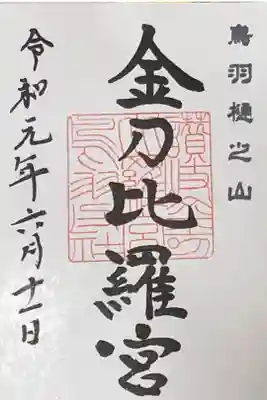 鳥羽樋之山
金刀比羅宮
令和元年六月十一日